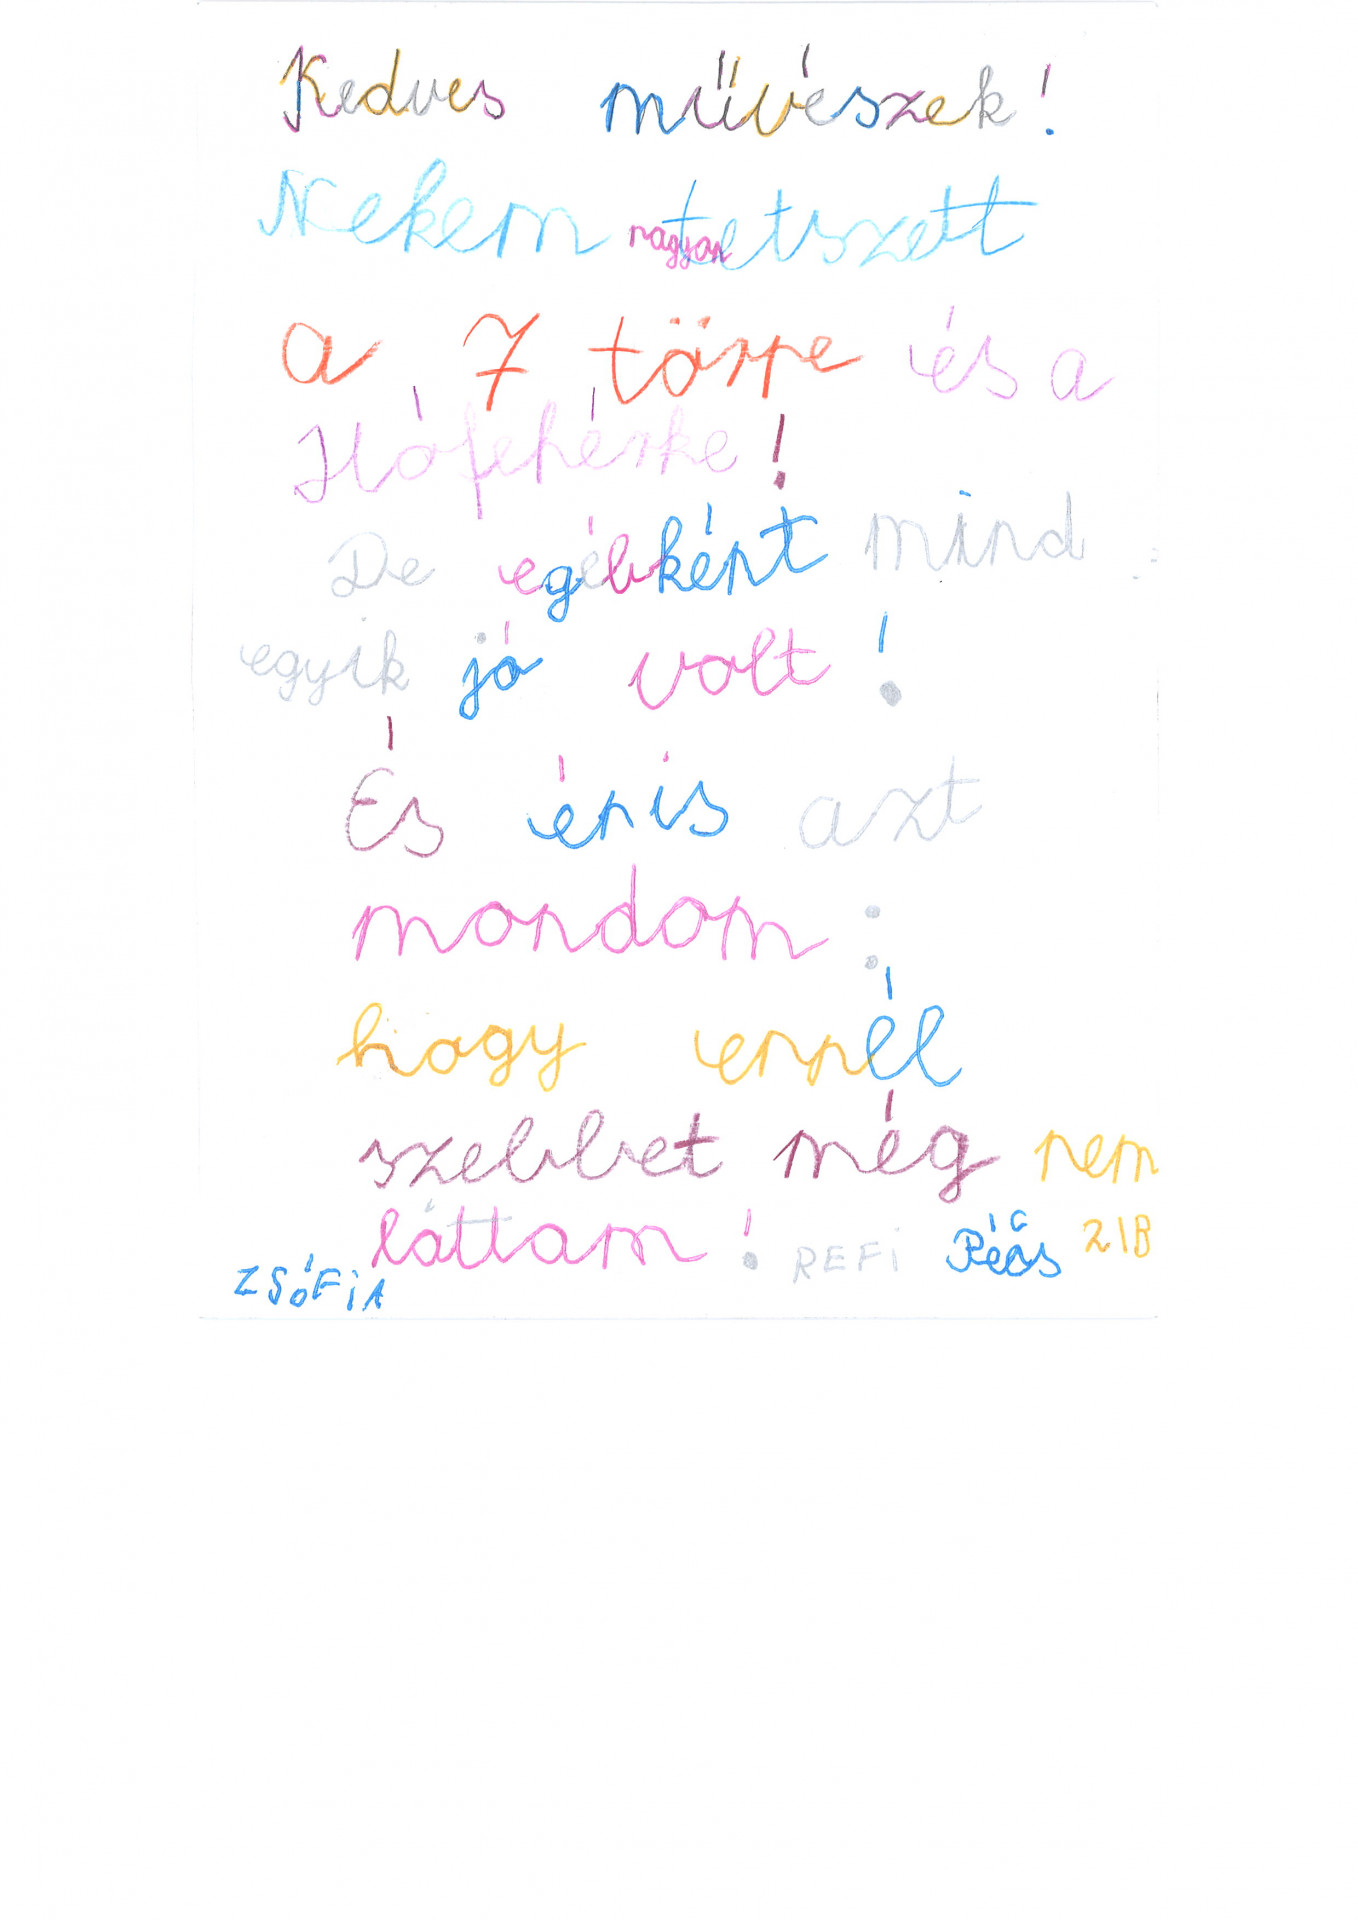 Kedves művészek!
Nekem nagyon tetszett
a 7 törpe és a
Hófehérke!
De egébként mind
egyik jó volt!
És énis azt
mondom:
hogy ennél
szebbet még nem
láttam! REFI 21B
ZSÓFIA